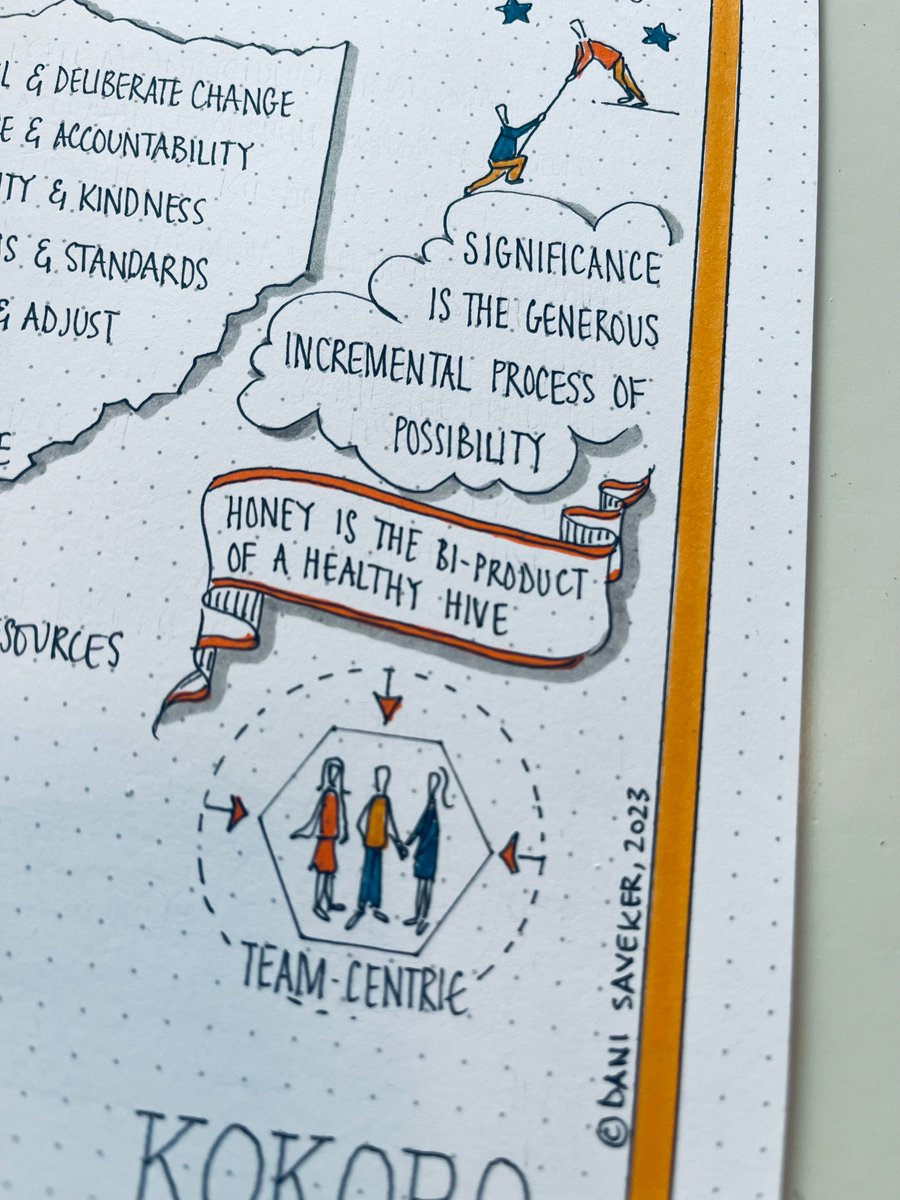 & DELIBERATE CHANGE
& ACCOUNTABILITY
& KINDNESS
& STANDARDS
& ADJUST
SIGNIFICANCE
IS THE GENEROUS
INCREMENTAL PROCESS OF
POSSIBILITY
HONEY IS THE BI-PRODUCT
OF A HEALTHY HIVE
TEAM-CENTRIC
© DANI SAVEKER, 2023
KOKORO